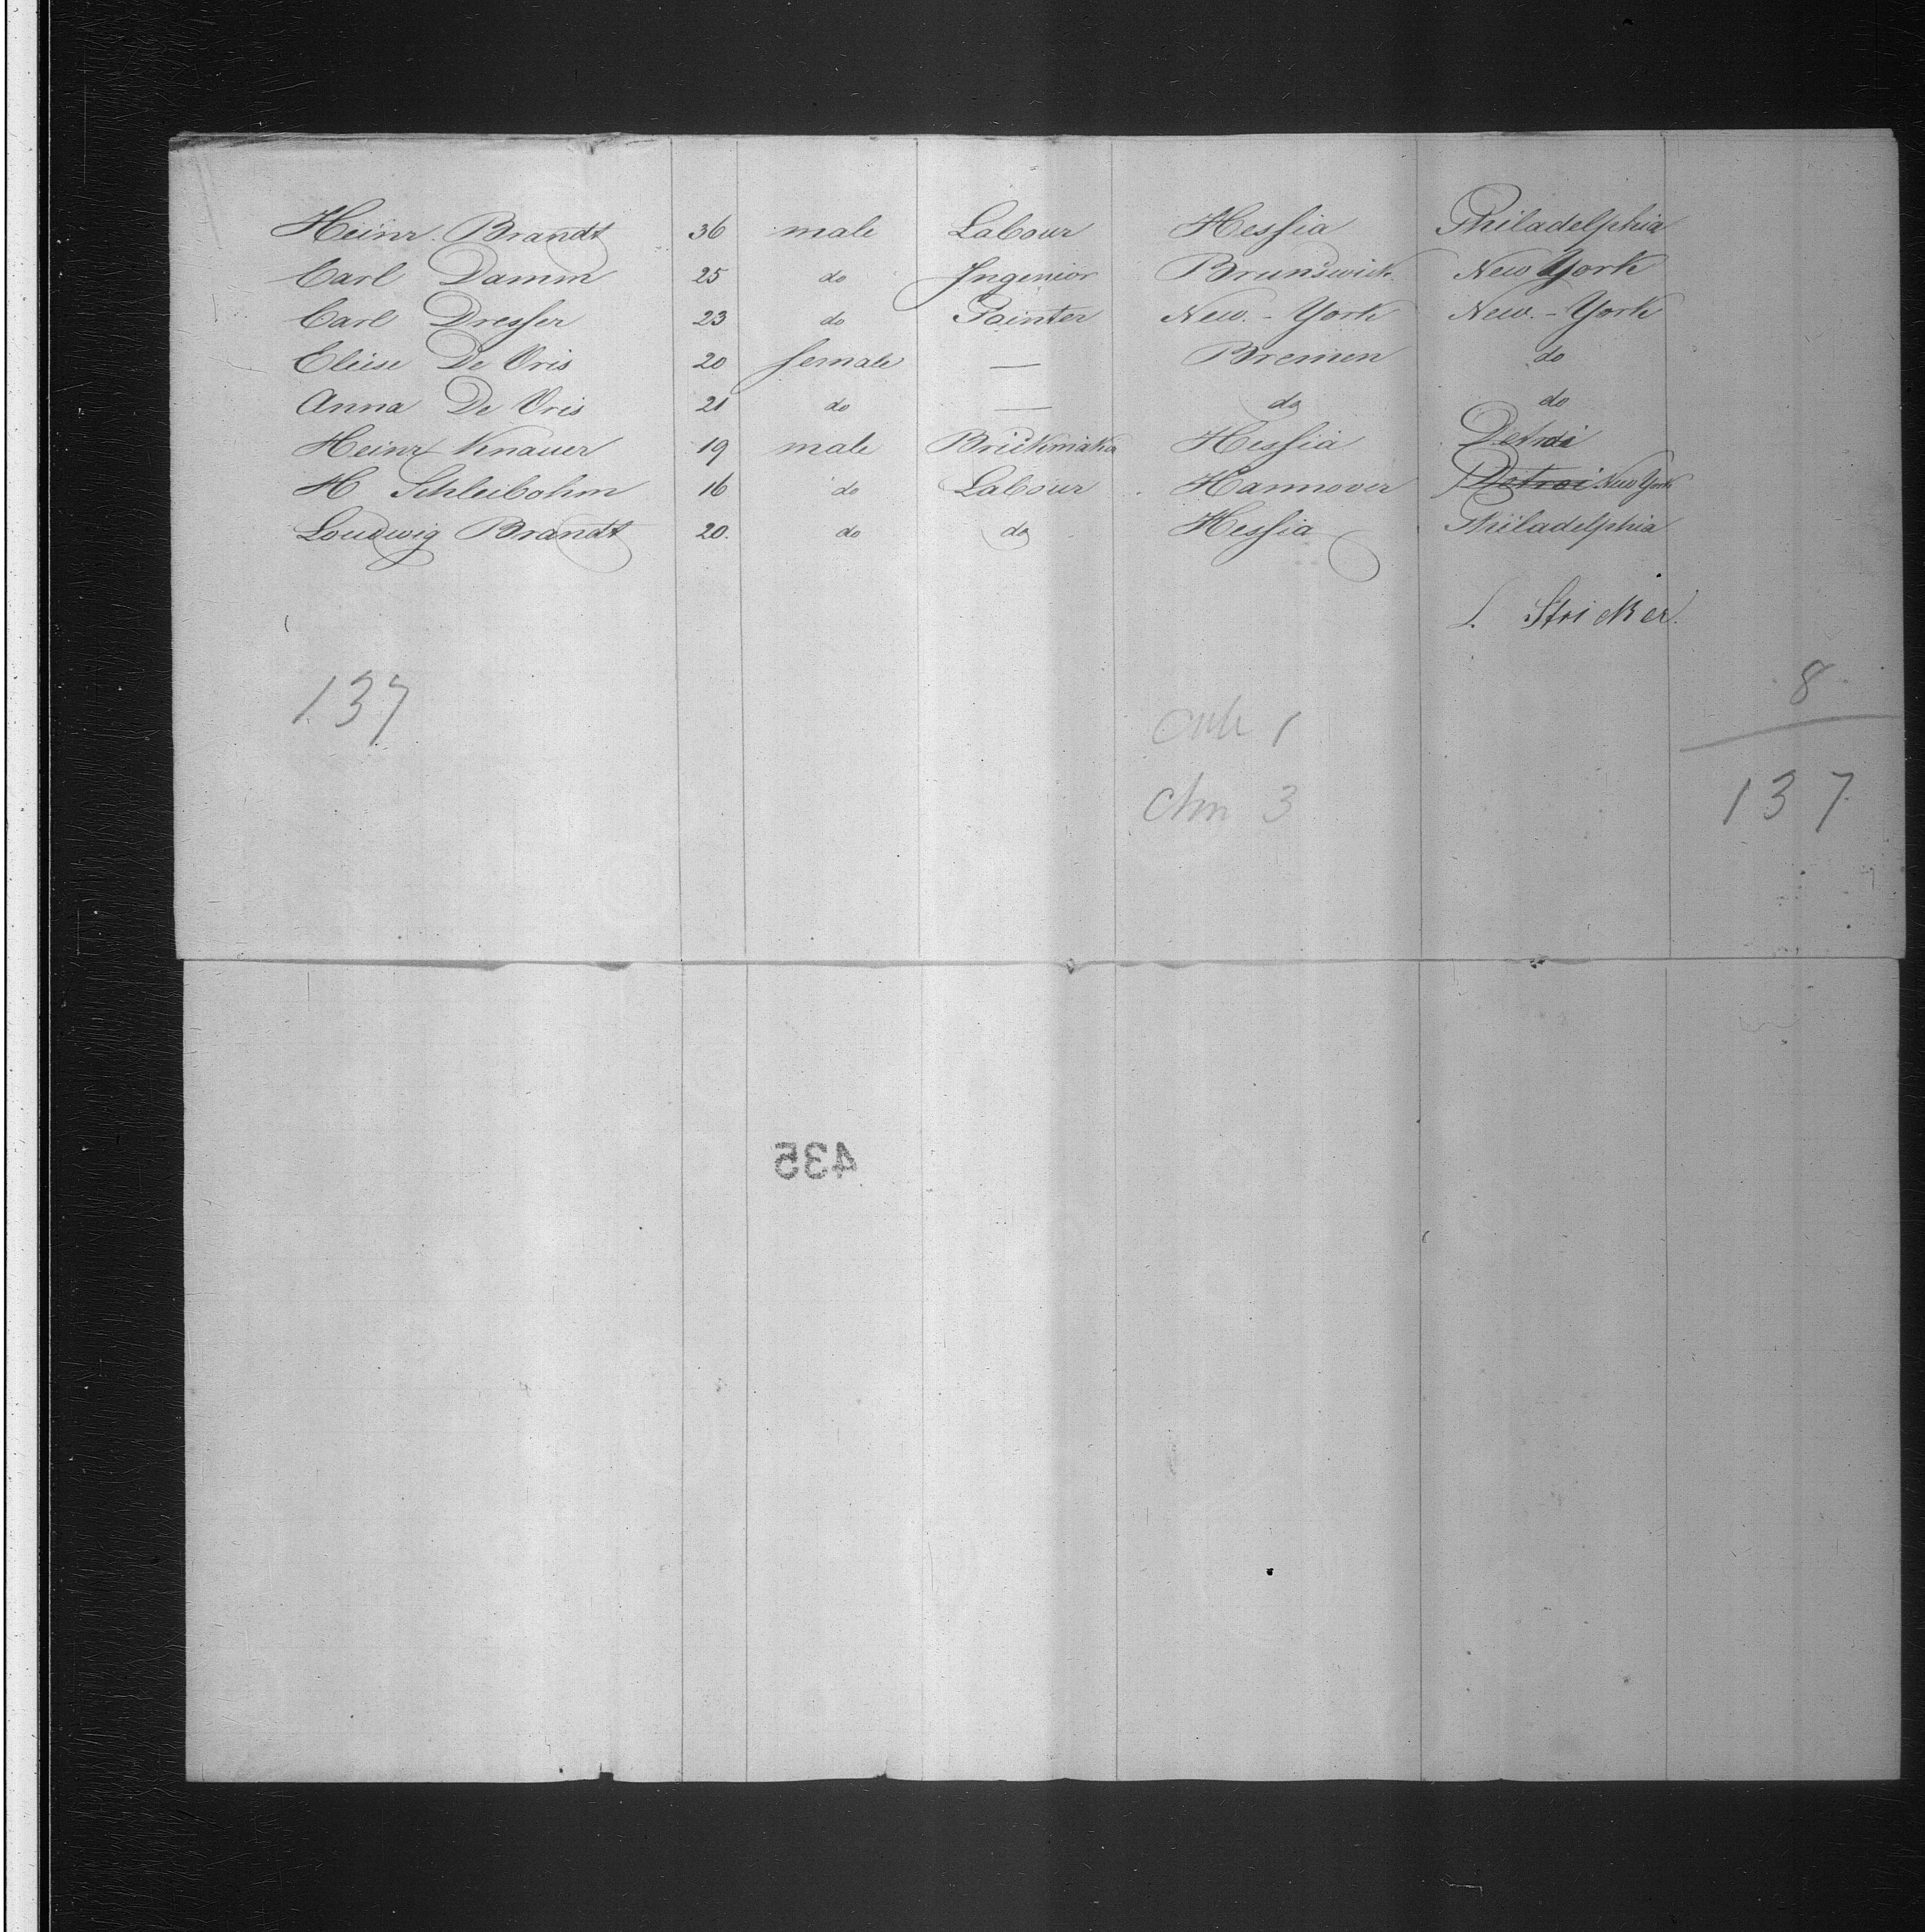 Heinr. Brandt 36 male Labour Hessia Philadelphia
Carl Damm 25 do Ingenior Brunswick New York
Carl Dresser 23 do Painter New.-York New.-York
Eleise De Vris 20 female — Bremen do
Anna De Vris 21 do — do do
Heinr Knauer 19 male Brickmaker Hessia Detroi
H Schleibohm 16 do Labour Hannover Detroi New York
Loudwig Brandt 20. do do Hessia Philadelphia
Stricker.
8
137
1
3
137
435